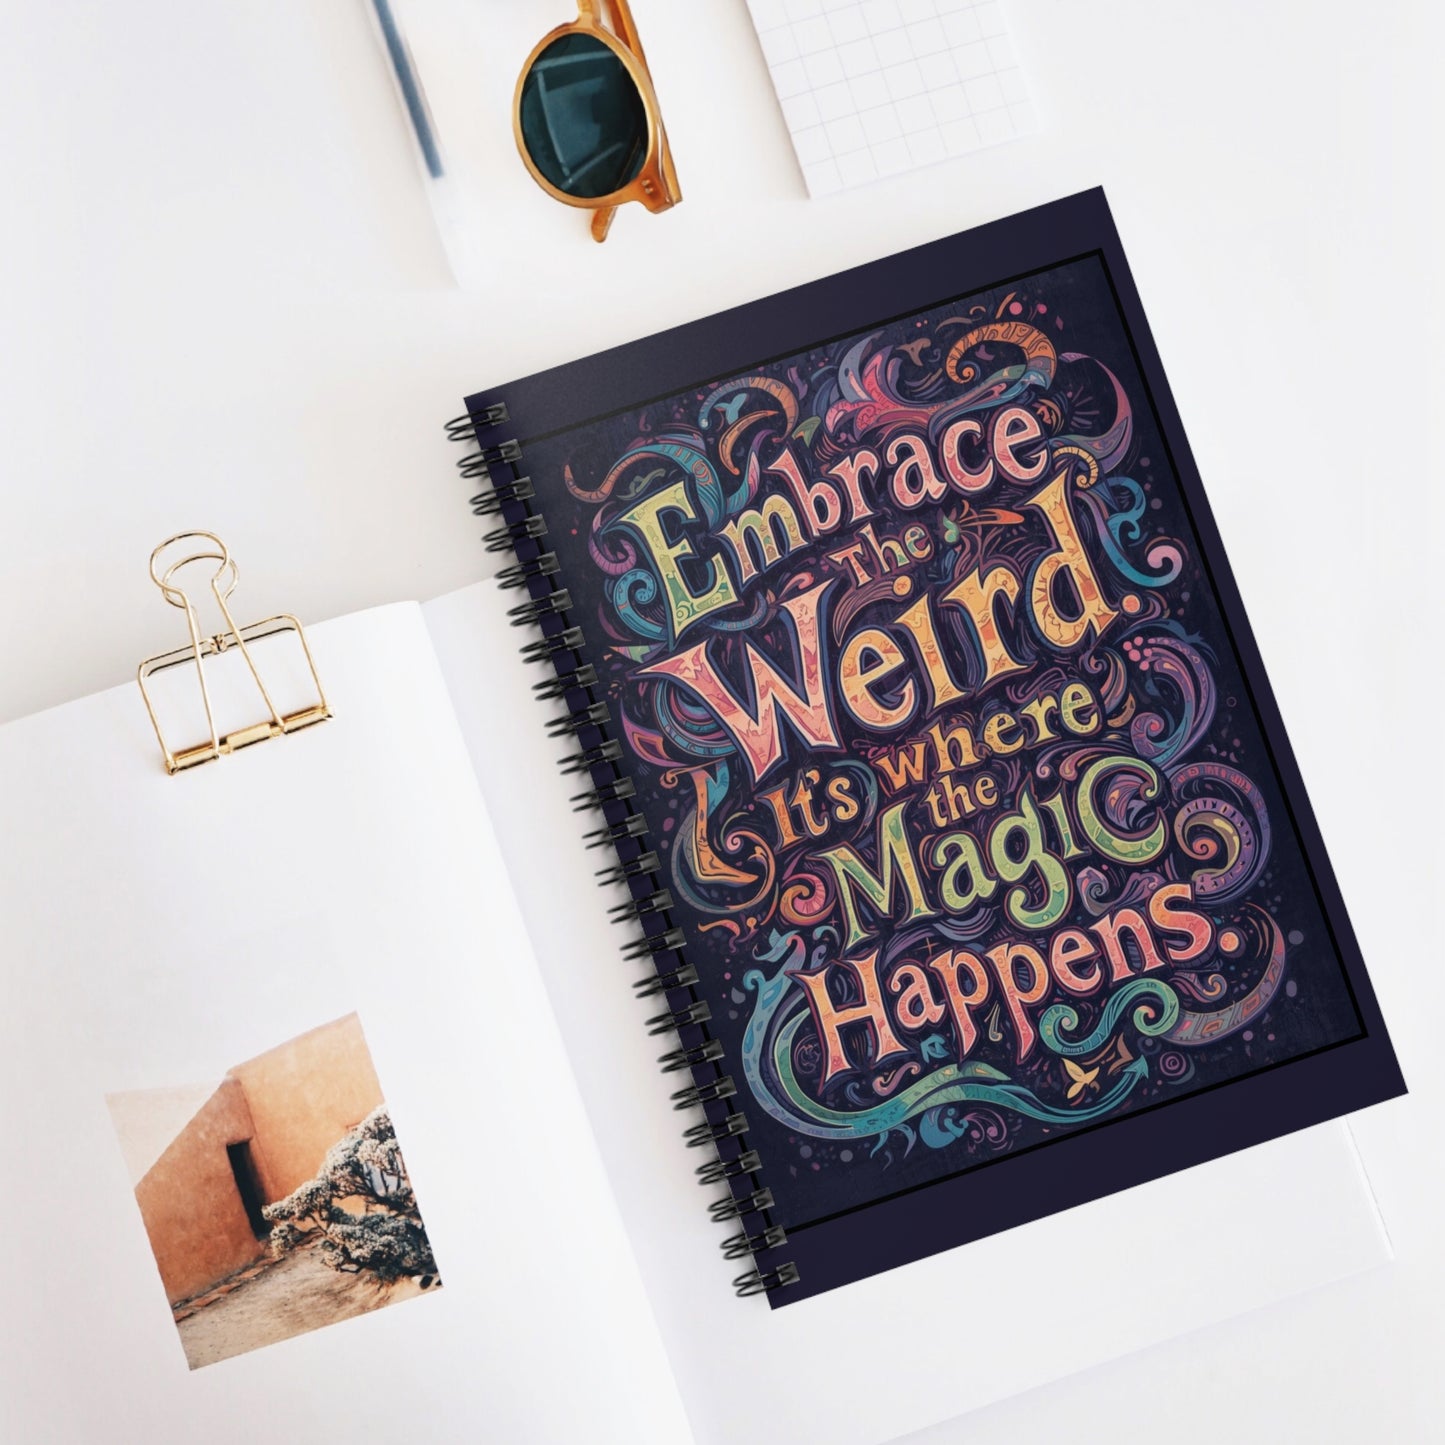 Embrace
The
Weird.
It's where
the
Magic
Happens.